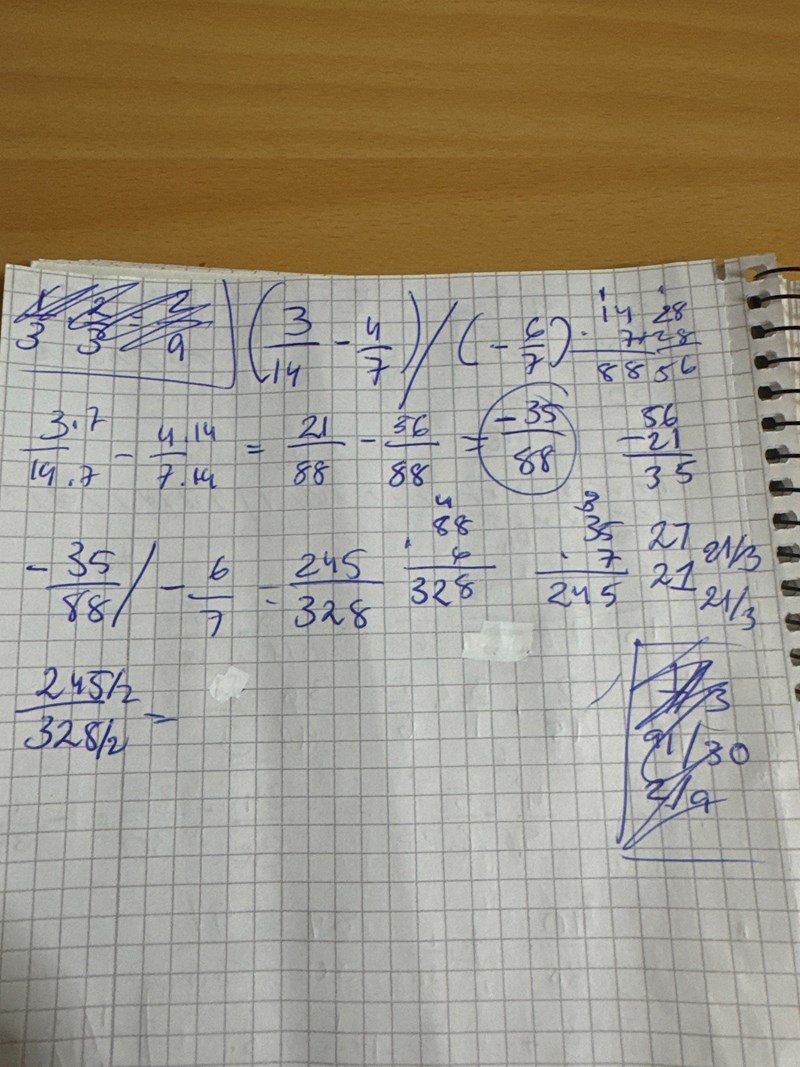 (3/14 - 4/7) / (- 6/7)
14
· 7
88
28
+28
56
3·7/14·7 - 4·14/7·14 = 21/88 - 56/88 = -35/88
56
-21
35
- 35/88 / - 6/7 = 245/328
4
88
· 6
328
3
35
· 7
245
27 21/3
21 21/3
245/2
328/2 =